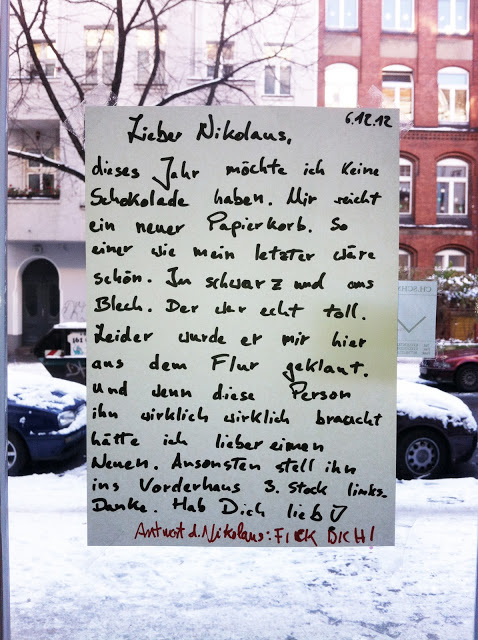 6.12.12
Lieber Nikolaus,
dieses Jahr möchte ich keine
Schokolade haben. Mir reicht
ein neuer Papierkorb. So
einer wie mein letzter wäre
schön. In schwarz und aus
Blech. Der war echt toll.
Leider wurde er mir hier
aus dem Flur geklaut.
Und wenn diese Person
ihn wirklich wirklich braucht
hätte ich lieber einen
Neuen. Ansonsten stell ihn
ins Vorderhaus 3. Stock links.
Danke. Hab Dich lieb
Antwort d. Nikolaus: FICK DICH!